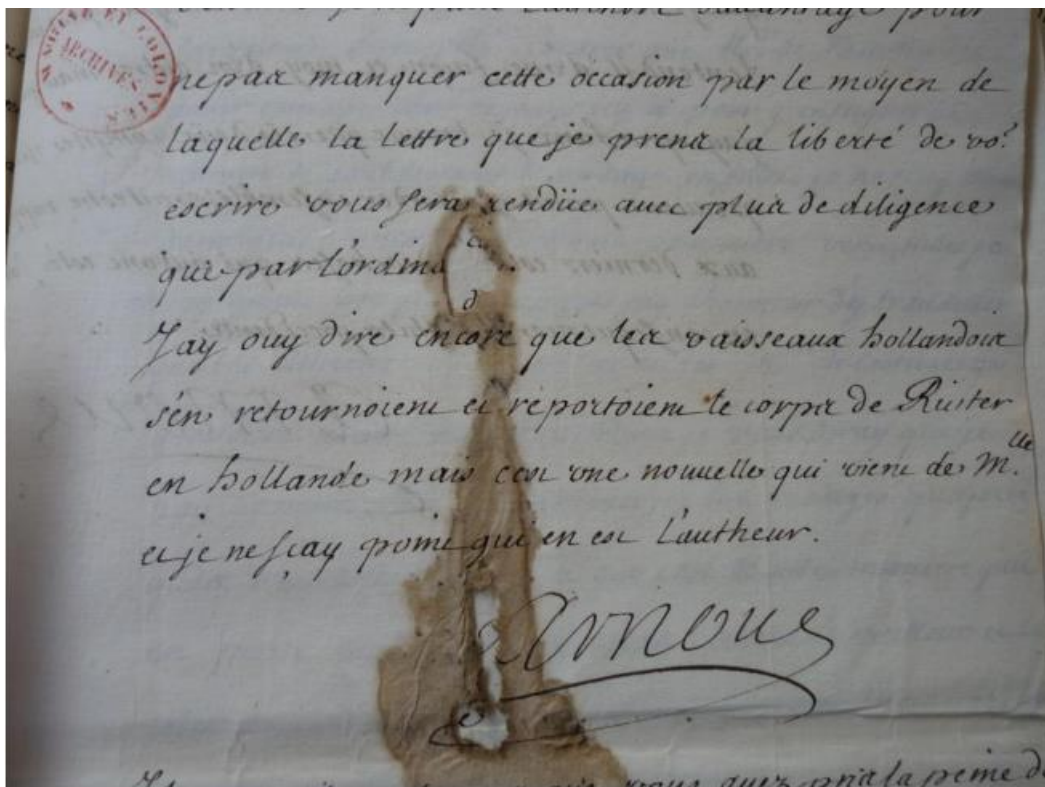 MARINE ET COLONIES
ARCHIVES
pour
ne pas manquer cette occasion par le moyen de
laquelle la lettre que je prens la liberté de vo.
escrire vous sera rendüe avec plus de diligence
que par l'ordina
Jay ouy dire encore que les vaisseaux hollandois
s'en retournoient et reportoient le corps de Ruiter
en hollande mais c'est une nouvelle qui vient de M.lle
et je ne sçay point qui en est l'autheur.
Arnoul
vous avez pris la peine d